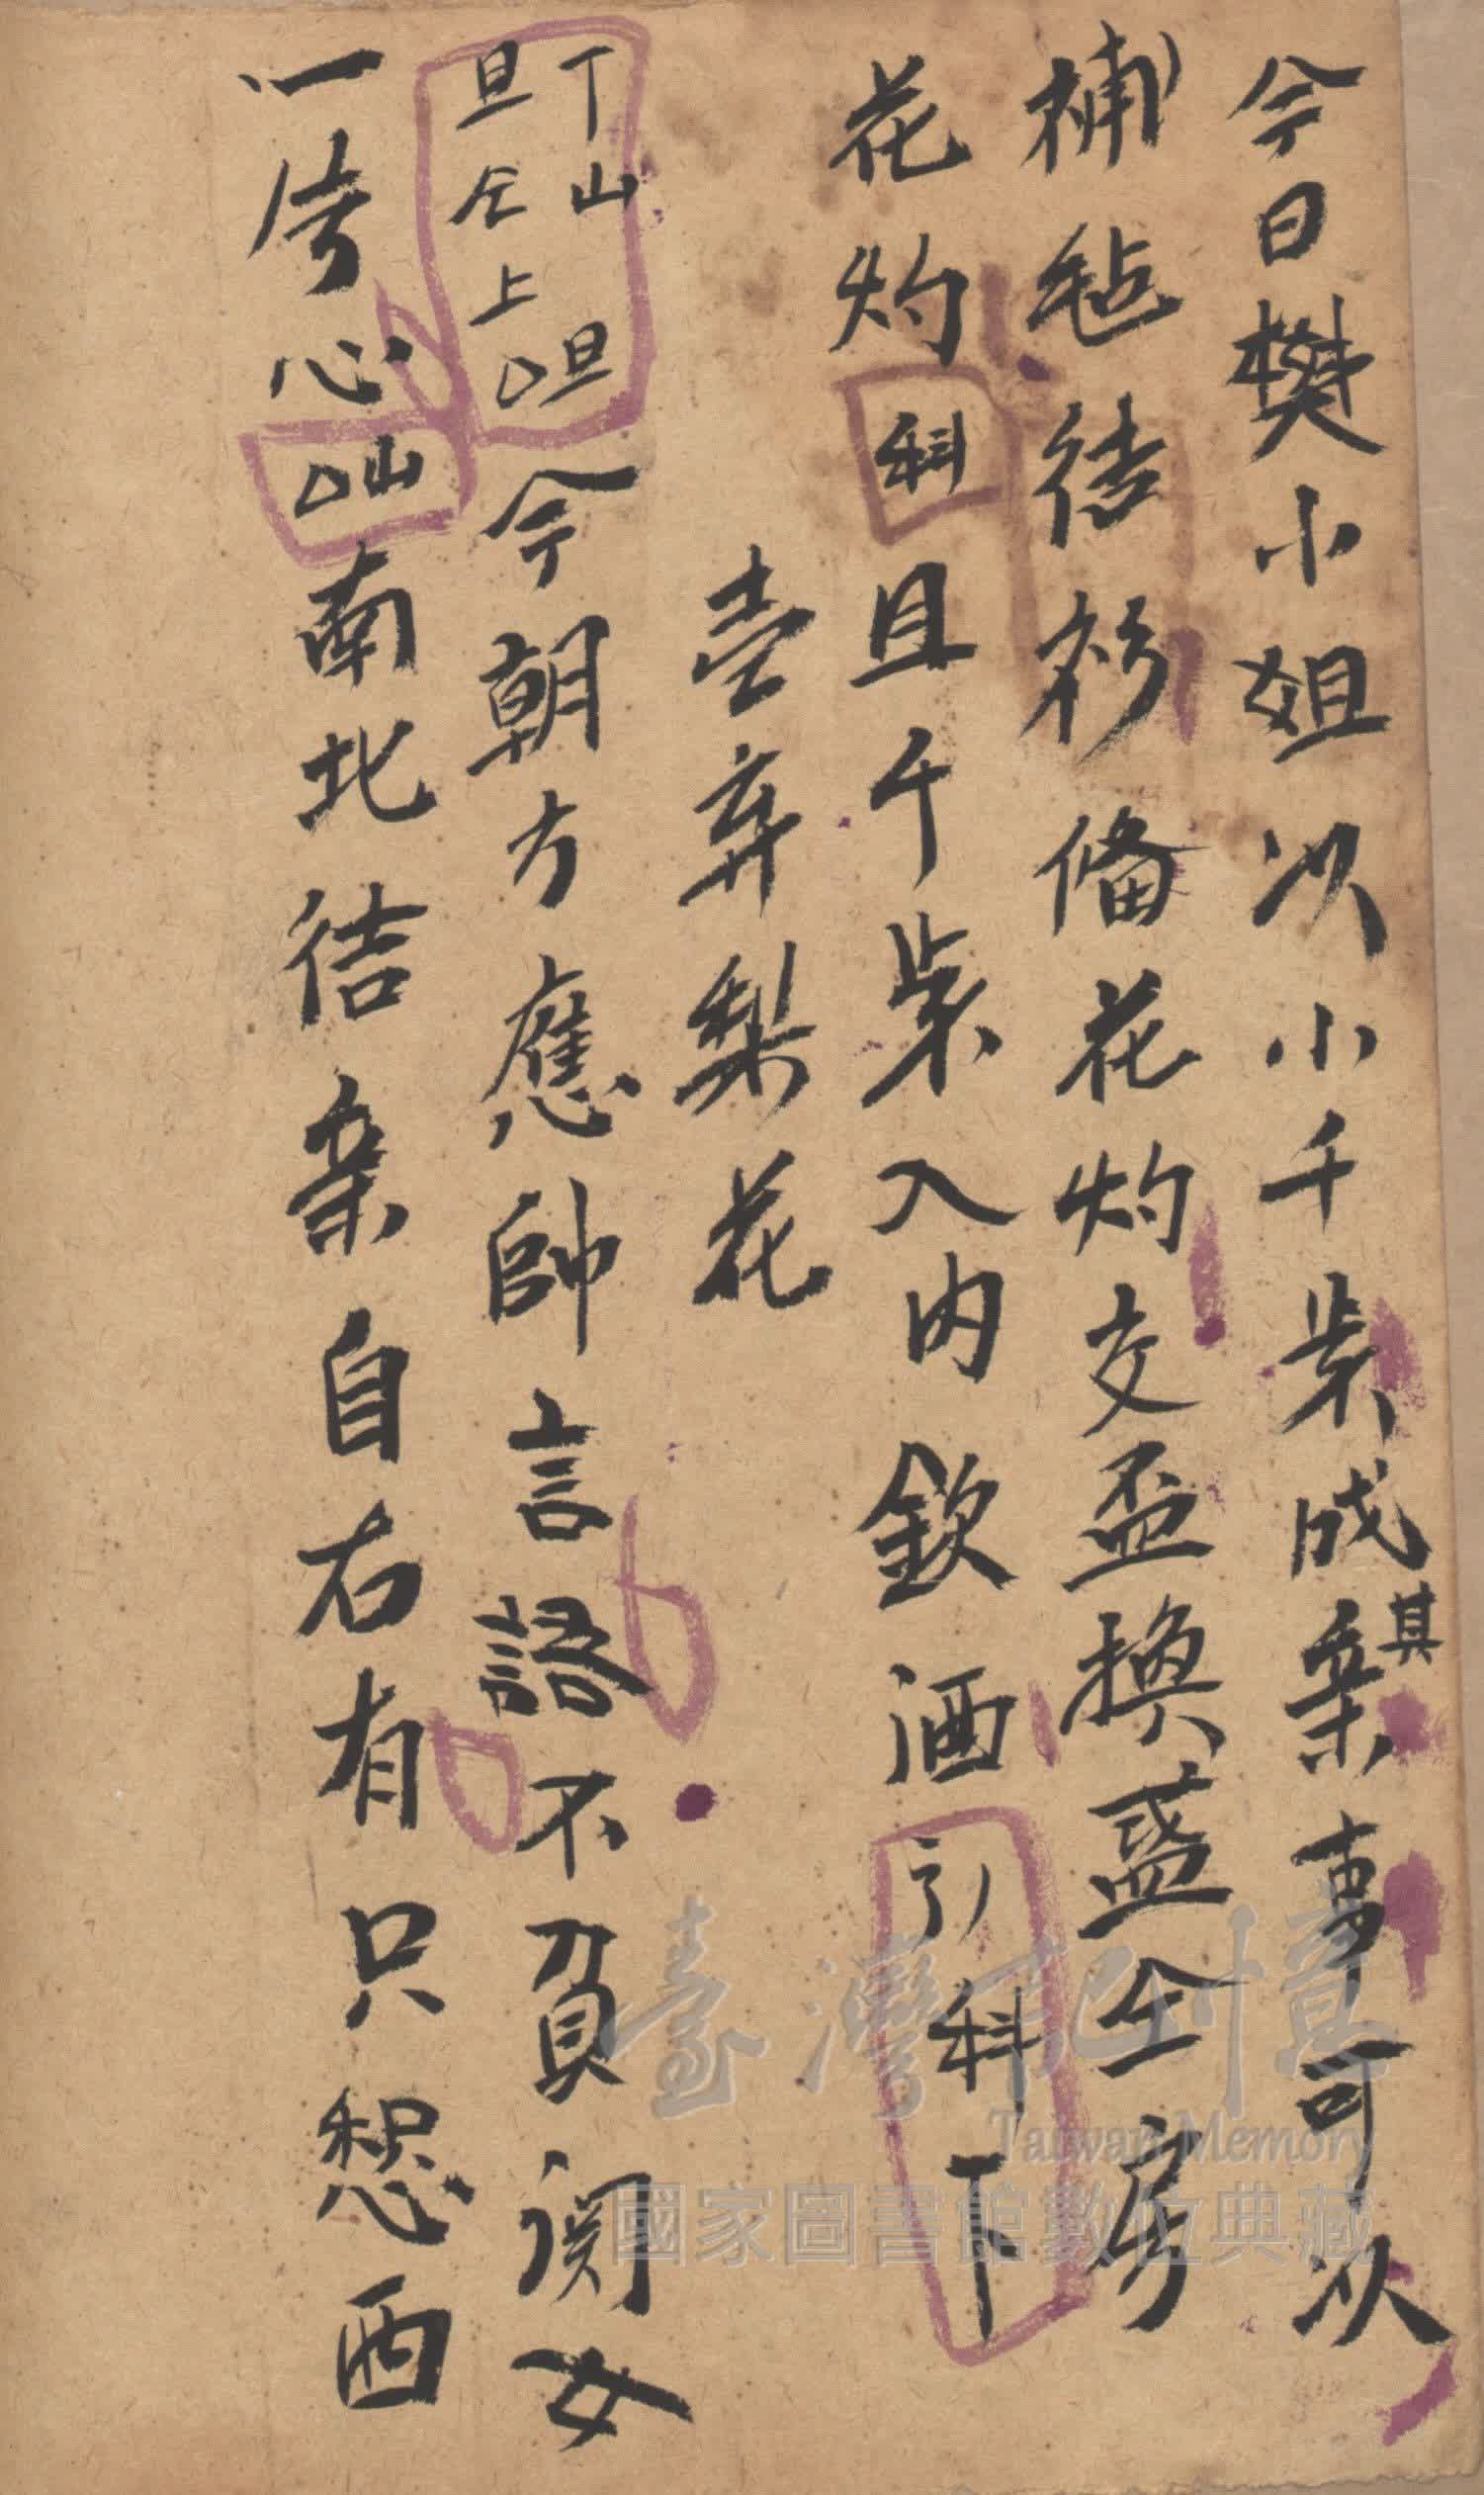 今日樊小姐以小千柴成亲其事可以
補毡结衫俻花灼交盃換盛仝房
花灼科且千柴入内欽酒引科下
壹弃梨花
丁山
旦仝上
旦
今朝方應帥言語不負閨女
一片心
山
南北结亲自右有只愁西
臺灣記憶
Taiwan Memory
國家圖書館數位典藏